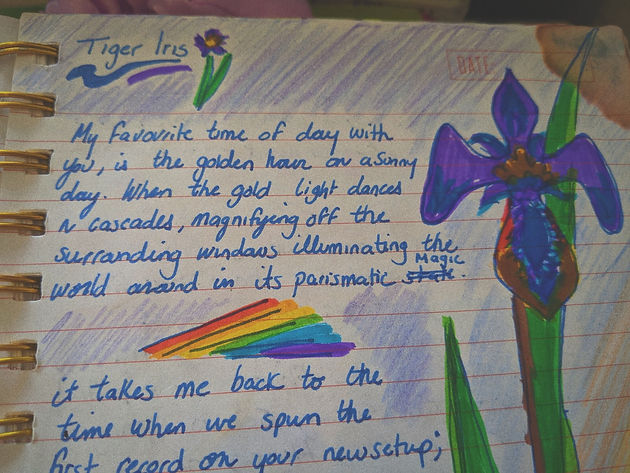 Tiger Iris
DATE
My favourite time of day with
you, is the golden hour on a sunny
day. When the gold light dances
n cascades, magnifying off the
surrounding windows illuminating the
world around in its parismatic Magic.
it takes me back to the
time when we spun the
first record on your new setup;